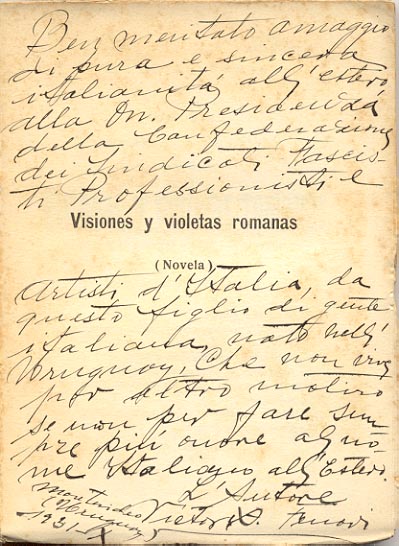 Ben meritato omaggio
di pura e sincera
italianitá all'estero
alla On. Presidenza
della Confederazione
dei Sindicati Fascis-
ti Professionisti e
Visiones y violetas romanas
(Novela)
Artisti d'Italia, da
questo figlio di gente
italiana, nato nell'
Uruguay, che non vive
per altro motivo
se non per fare sem
pre piú onore al no-
me Italiano all'Estero.
L'Autore
Montevideo
(Uruguay)
1931-X